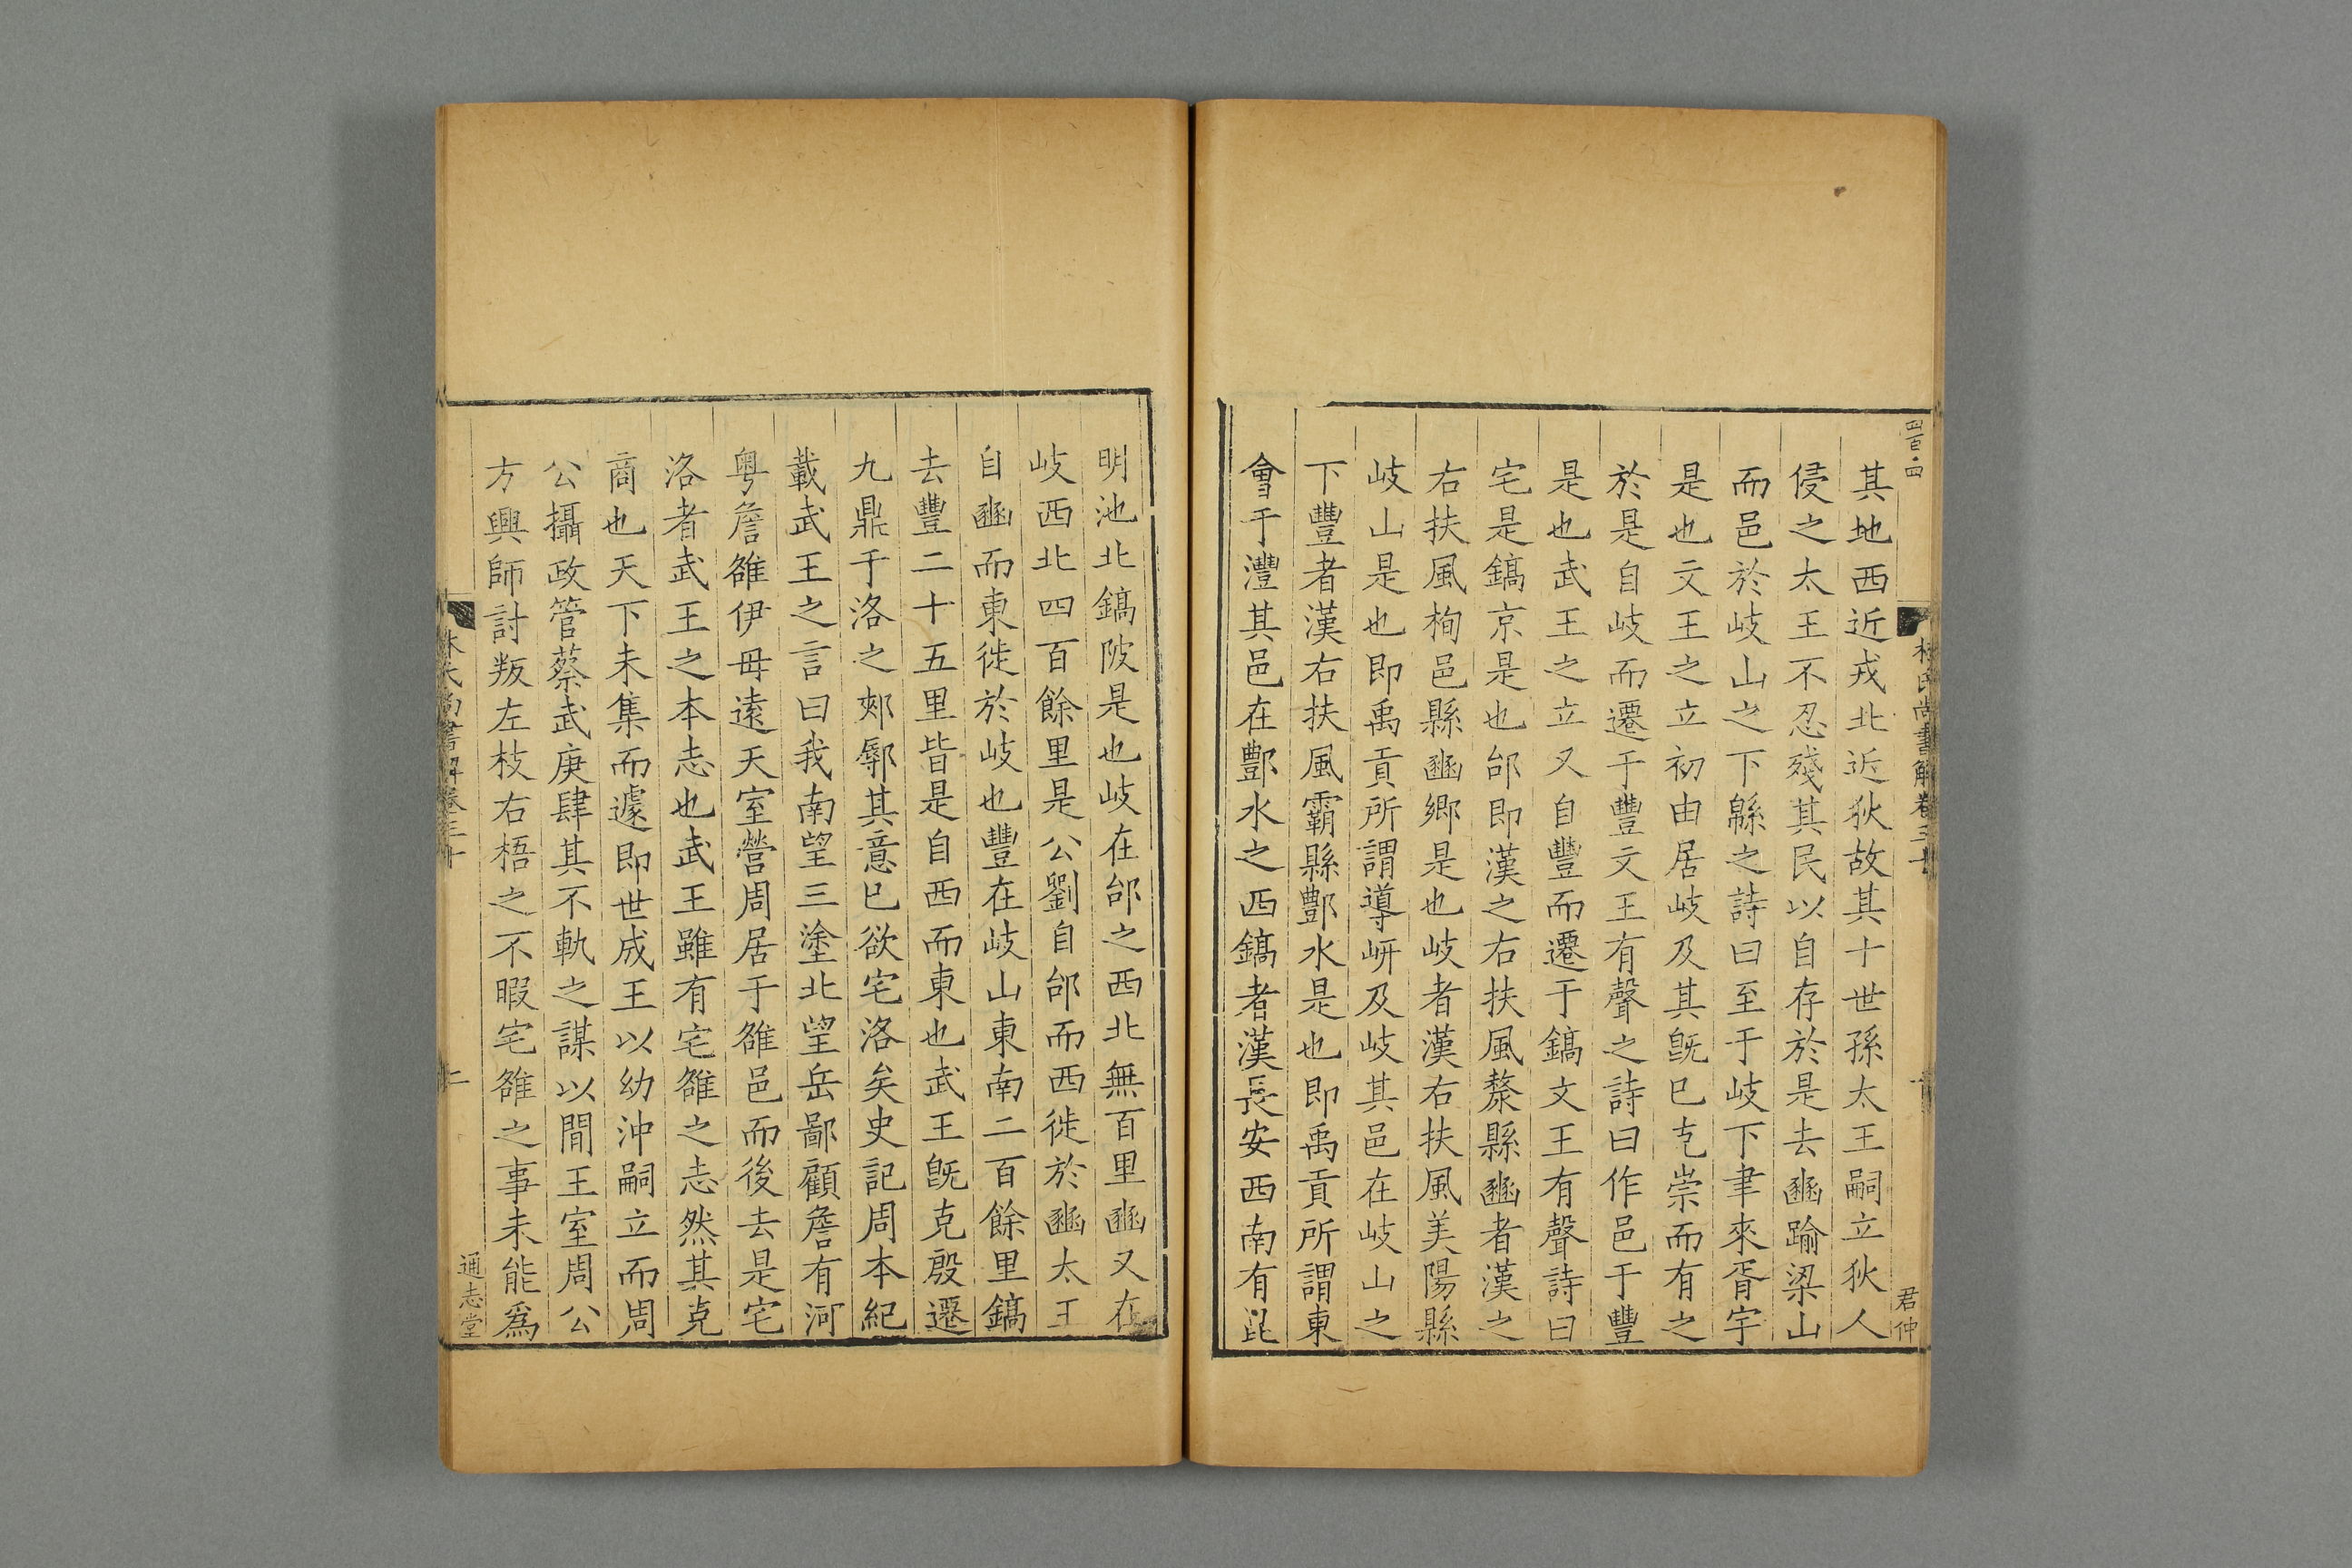 四百·四
其地西近戎北近狄故其十世孫太王嗣立狄人
侵之太王不忍殘其民以自存於是去豳踰梁山
而邑於岐山之下緜之詩曰至于岐下聿來胥宇
是也文王之立初由居岐及其旣已克崇而有之
於是自岐而遷于豐文王有聲之詩曰作邑于豐
是也武王之立又自豐而遷于鎬文王有聲詩曰
宅是鎬京是也邰即漢之右扶風斄縣豳者漢之
右扶風栒邑縣豳鄉是也岐者漢右扶風美陽縣
岐山是也即禹貢所謂導岍及岐其邑在岐山之
下豐者漢右扶風霸縣酆水是也即禹貢所謂東
會于灃其邑在酆水之西鎬者漢長安西南有昆
林氏尚書解卷三十
君仲
明池北鎬陂是也岐在邰之西北無百里豳又在
岐西北四百餘里是公劉自邰而西徙於豳太王
自豳而東徙於岐也豐在岐山東南二百餘里鎬
去豐二十五里皆是自西而東也武王旣克殷遷
九鼎于洛之郟鄏其意已欲宅洛矣史記周本紀
載武王之言曰我南望三塗北望岳鄙顧詹有河
粵詹雒伊毋遠天室營周居于雒邑而後去是宅
洛者武王之本志也武王雖有宅雒之志然其克
商也天下未集而遽即世成王以幼沖嗣立而周
公攝政管蔡武庚肆其不軌之謀以間王室周公
方興師討叛左枝右梧之不暇宅雒之事未能爲
林氏尚書解卷三十
通志堂